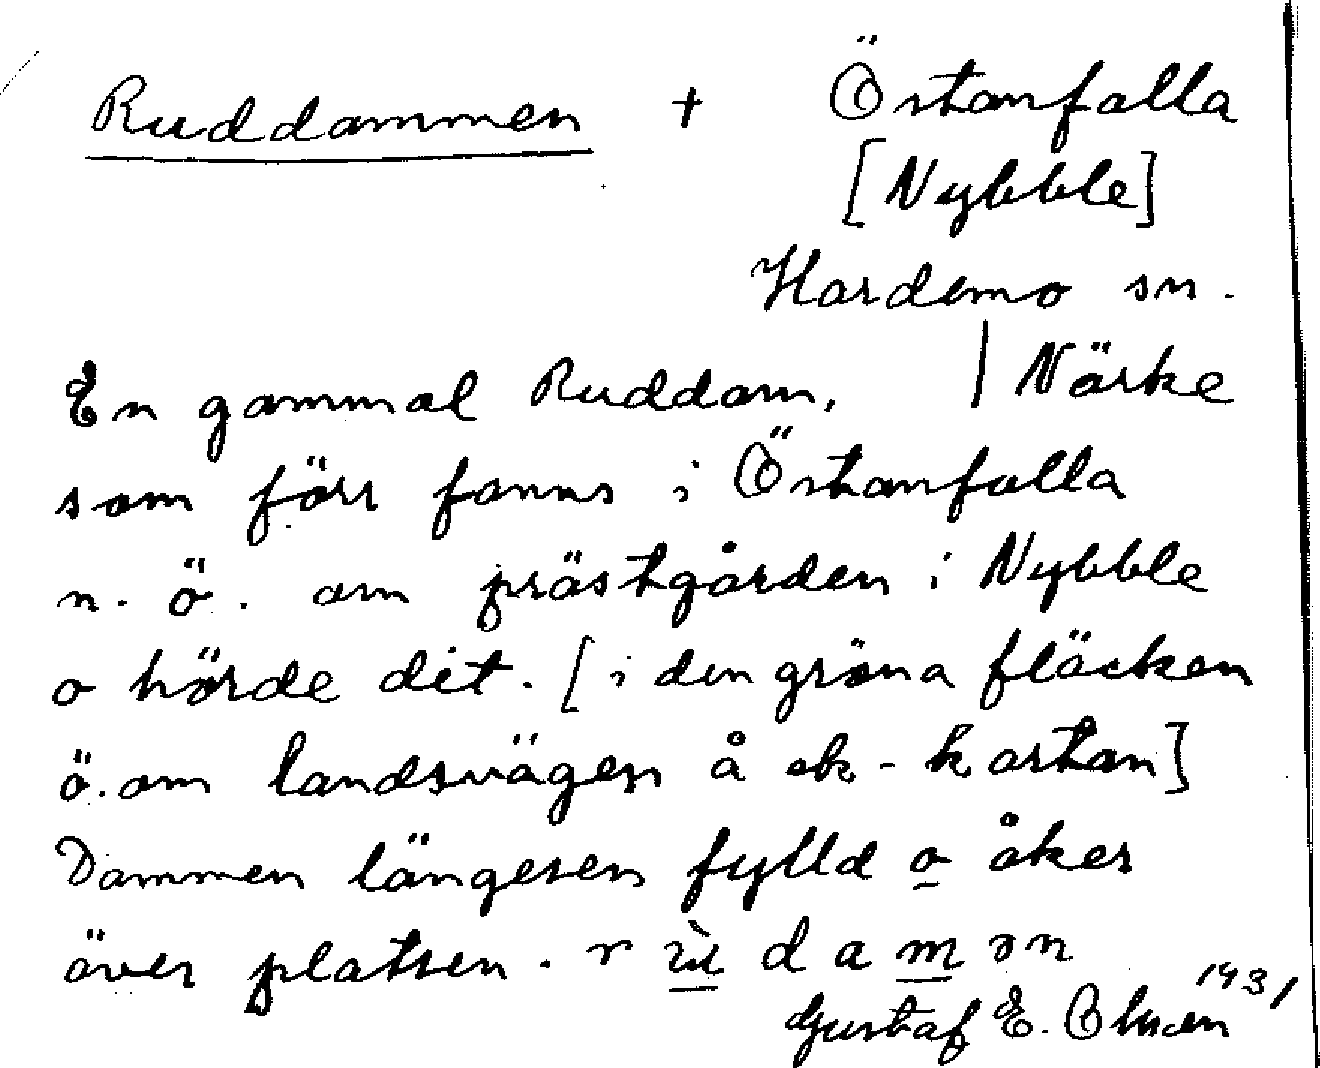 Ruddammen + Östanfalla
[Nybble]
Hardemo sn.
En gammal Ruddam, | Närke
som förr fanns i Östanfalla
n. ö. om prästgården i Nybble
o hörde dit. [i den gröna fläcken
ö. om landsvägen å ek-kartan]
Dammen längesen fylld o åker
över platsen. r ù d a m ə n
1931
Gustaf E. Olsson